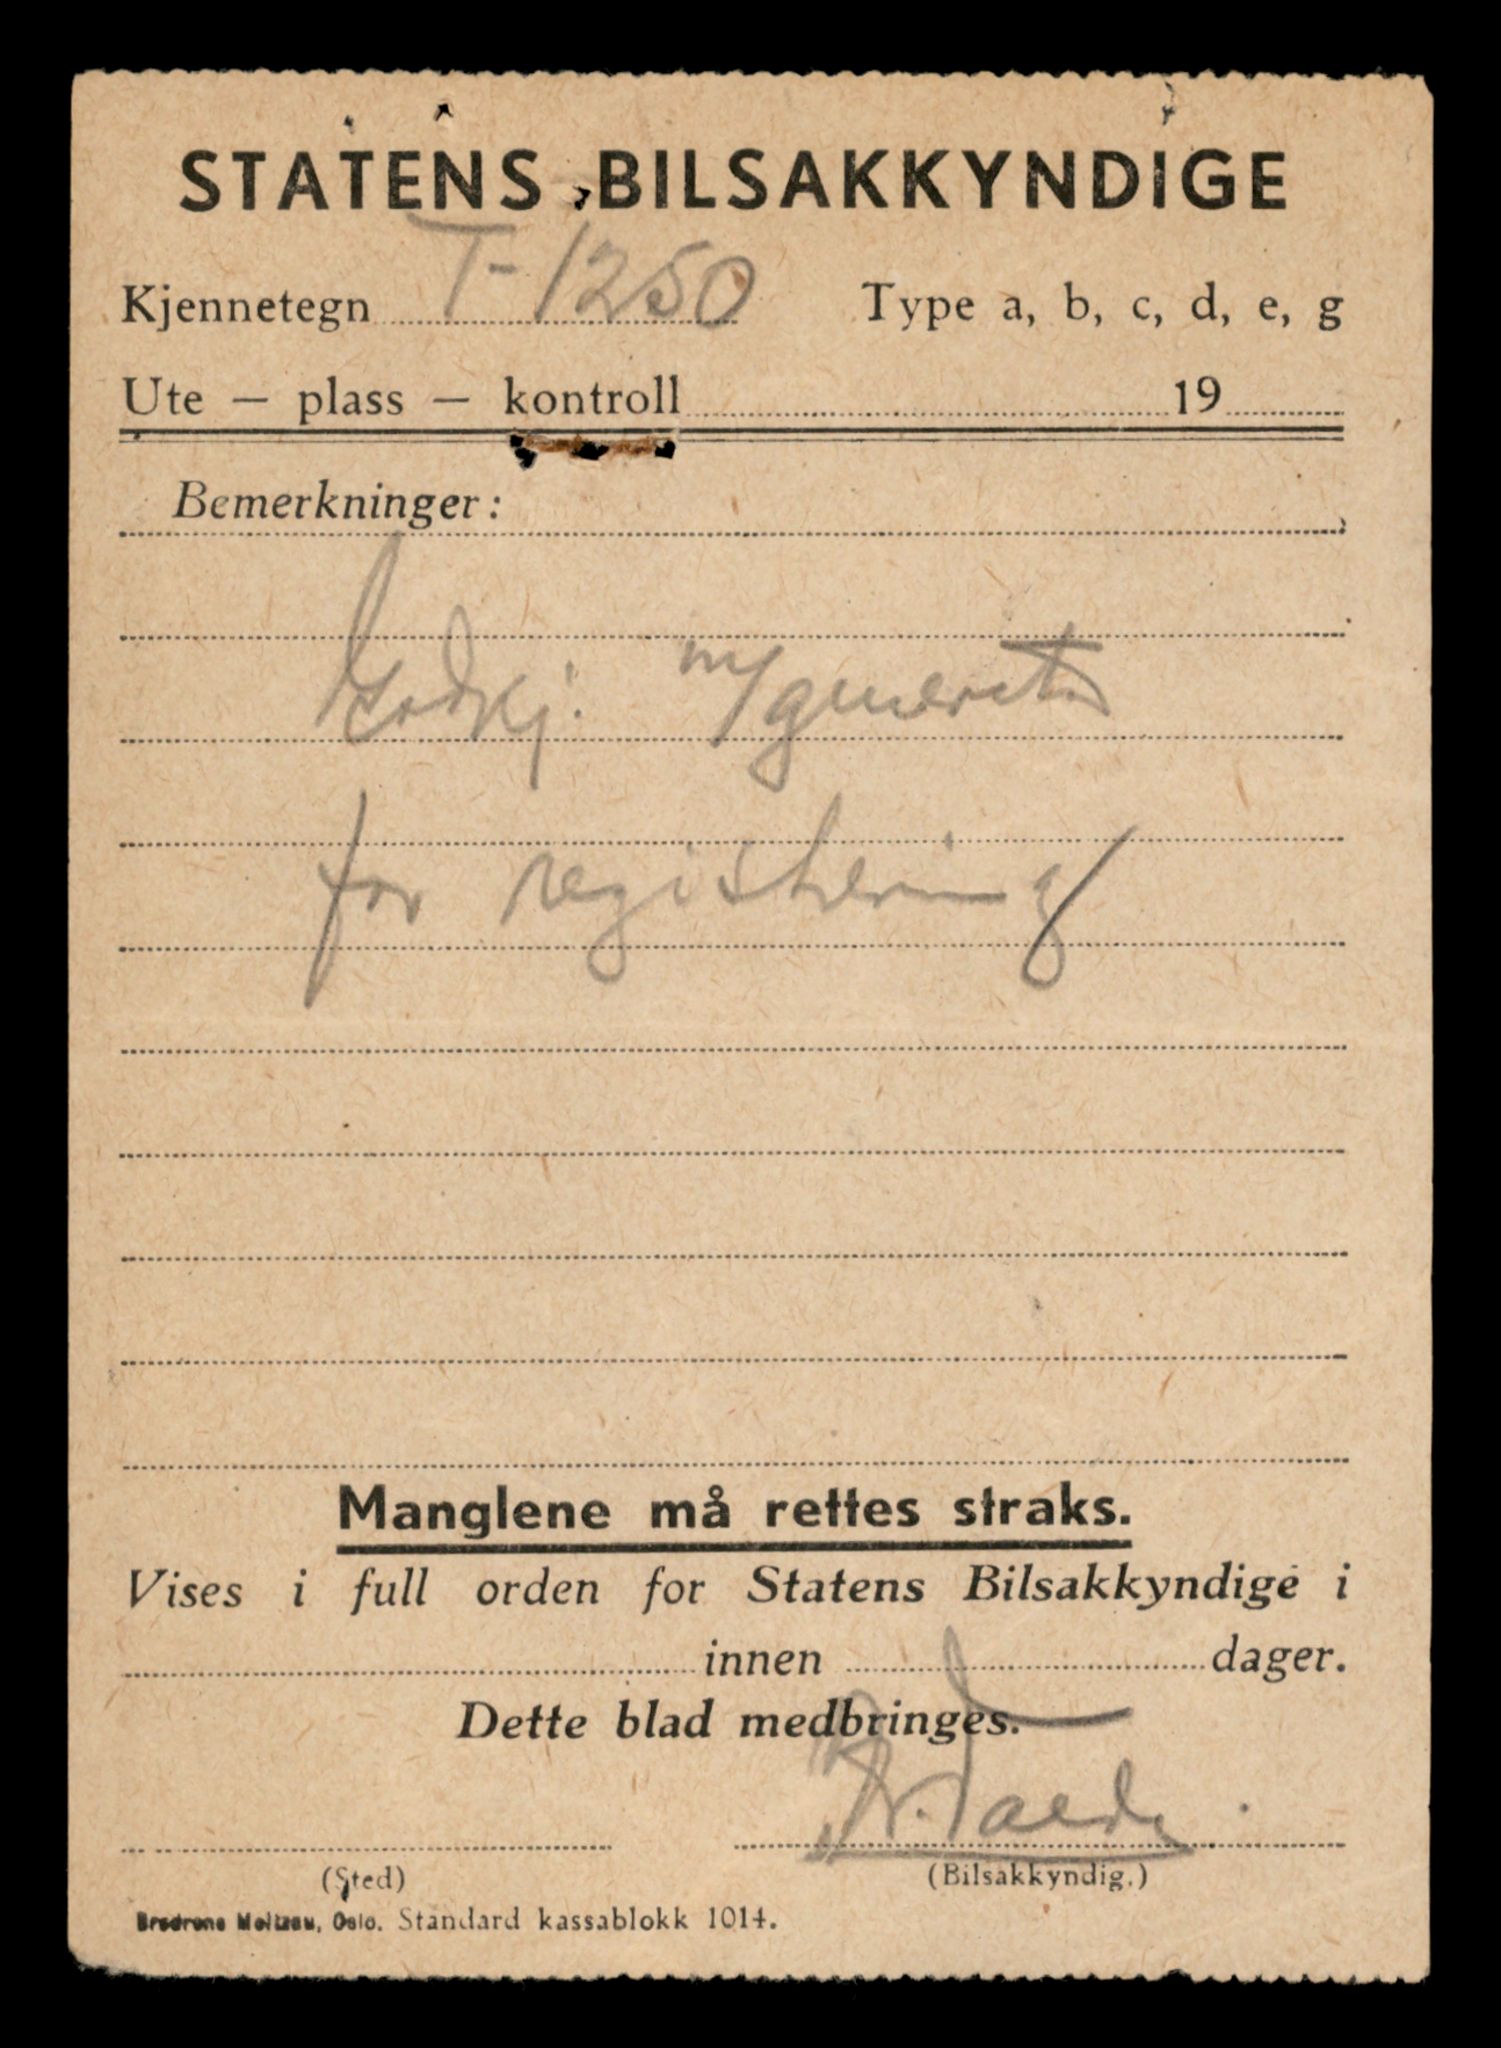 STATENS BILSAKKYNDIGE
Kjennetegn T-1250 Type a, b, c, d, e, g
Ute — plass — kontroll 19
Bemerkninger:
Godkj. m/generator
for registrering
Manglene må rettes straks.
Vises i full orden for Statens Bilsakkyndige i
innen dager.
Dette blad medbringes.
(Sted) (Bilsakkyndig.)
Oslo. Standard kassablokk 1014.